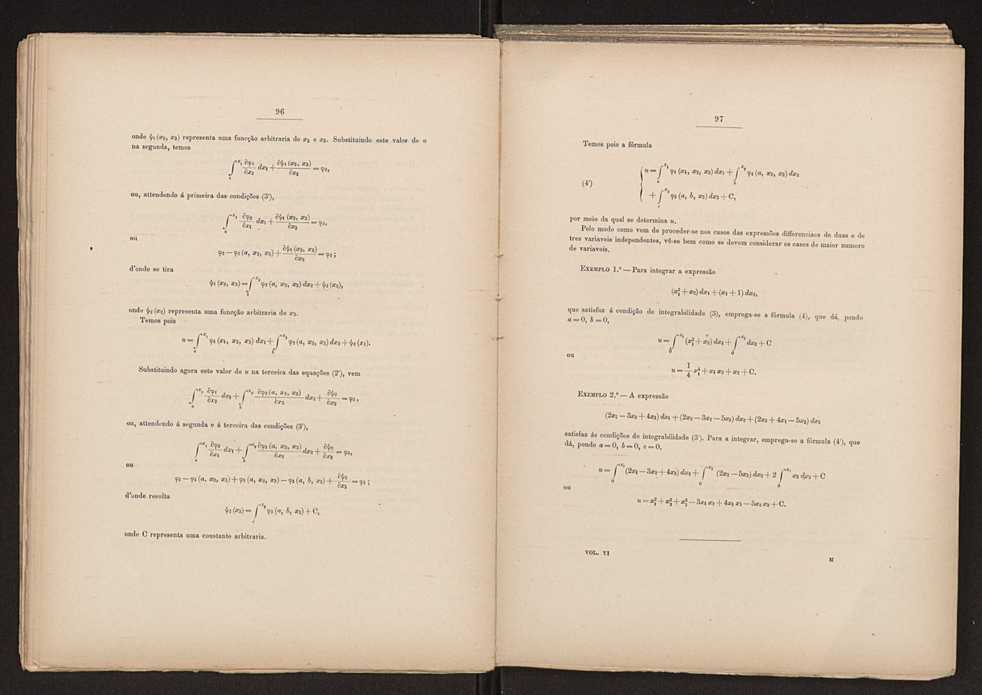 96
onde ψ₁ (x₂, x₃) representa uma funcção arbitraria de x₂ e x₃. Substituindo este valor de u
na segunda, temos
∫ₐ^x₁ ∂φ₁/∂x₂ dx₁ + ∂ψ₁ (x₂, x₃)/∂x₂ = φ₂,
ou, attendendo á primeira das condições (3'),
∫ₐ^x₁ ∂φ₂/∂x₁ dx₁ + ∂ψ₁ (x₂, x₃)/∂x₂ = φ₂,
ou
φ₂ — φ₂ (a, x₂, x₃) + ∂ψ₁ (x₂, x₃)/∂x₂ = φ₂ ;
d'onde se tira
ψ₁ (x₂, x₃) = ∫_b^x₂ φ₂ (a, x₂, x₃) dx₂ + ψ₂ (x₃),
onde ψ₂ (x₃) representa uma funcção arbitraria de x₃.
Temos pois
u = ∫ₐ^x₁ φ₁ (x₁, x₂, x₃) dx₁ + ∫_b^x₂ φ₂ (a, x₂, x₃) dx₂ + ψ₂ (x₃).
Substituindo agora este valor de u na terceira das equações (2'), vem
∫ₐ^x₁ ∂φ₁/∂x₃ dx₁ + ∫_b^x₂ ∂φ₂ (a, x₂, x₃)/∂x₃ dx₂ + ∂ψ₂/∂x₃ = φ₃,
ou, attendendo á segunda e á terceira das condições (3'),
∫ₐ^x₁ ∂φ₃/∂x₁ dx₁ + ∫_b^x₂ ∂φ₃ (a, x₂, x₃)/∂x₂ dx₂ + ∂ψ₂/∂x₃ = φ₃,
ou
φ₃ — φ₃ (a, x₂, x₃) + φ₃ (a, x₂, x₃) — φ₃ (a, b, x₃) + ∂ψ₂/∂x₃ = φ₃ ;
d'onde resulta
ψ₂ (x₃) = ∫_c^x₃ φ₃ (a, b, x₃) + C,
onde C representa uma constante arbitraria.
97
Temos pois a fórmula
(4') { u = ∫ₐ^x₁ φ₁ (x₁, x₂, x₃) dx₁ + ∫_b^x₂ φ₂ (a, x₂, x₃) dx₂
+ ∫_c^x₃ φ₃ (a, b, x₃) dx₃ + C,
por meio da qual se determina u.
Pelo modo como vem de proceder-se nos casos das expressões differenciaes de duas e de
tres variaveis independentes, vê-se bem como se devem considerar os casos de maior numero
de variaveis.
EXEMPLO 1.º — Para integrar a expressão
(x₁³ + x₂) dx₁ + (x₁ + 1) dx₂,
que satisfaz á condição de integrabilidade (3), emprega-se a fórmula (4), que dá, pondo
a = 0, b = 0,
u = ∫₀^x₁ (x₁³ + x₂) dx₁ + ∫₀^x₂ dx₂ + C
ou
u = 1/4 x₁⁴ + x₁ x₂ + x₂ + C.
EXEMPLO 2.º — A expressão
(2x₁ — 3x₂ + 4x₃) dx₁ + (2x₂ — 3x₁ — 5x₃) dx₂ + (2x₃ + 4x₁ — 5x₂) dx₃
satisfaz ás condições de integrabilidade (3'). Para a integrar, emprega-se a fórmula (4'), que
dá, pondo a = 0, b = 0, c = 0,
u = ∫₀^x₁ (2x₁ — 3x₂ + 4x₃) dx₁ + ∫₀^x₂ (2x₂ — 5x₃) dx₂ + 2 ∫₀^x₃ x₃ dx₃ + C
ou
u = x₁² + x₂² + x₃² — 3x₁ x₂ + 4x₁ x₃ — 5x₂ x₃ + C.
VOL. VI
M